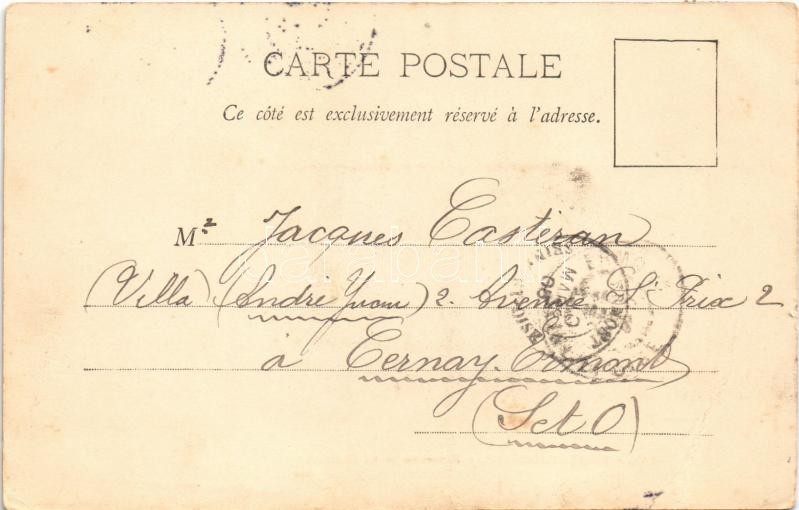 CARTE POSTALE
Ce côté est exclusivement réservé à l'adresse.
Mr Jacques Casteran
(Villa) (André Yvonne) 2. Avenue St Prix 2
à Cernay. Ermont
(S et O)